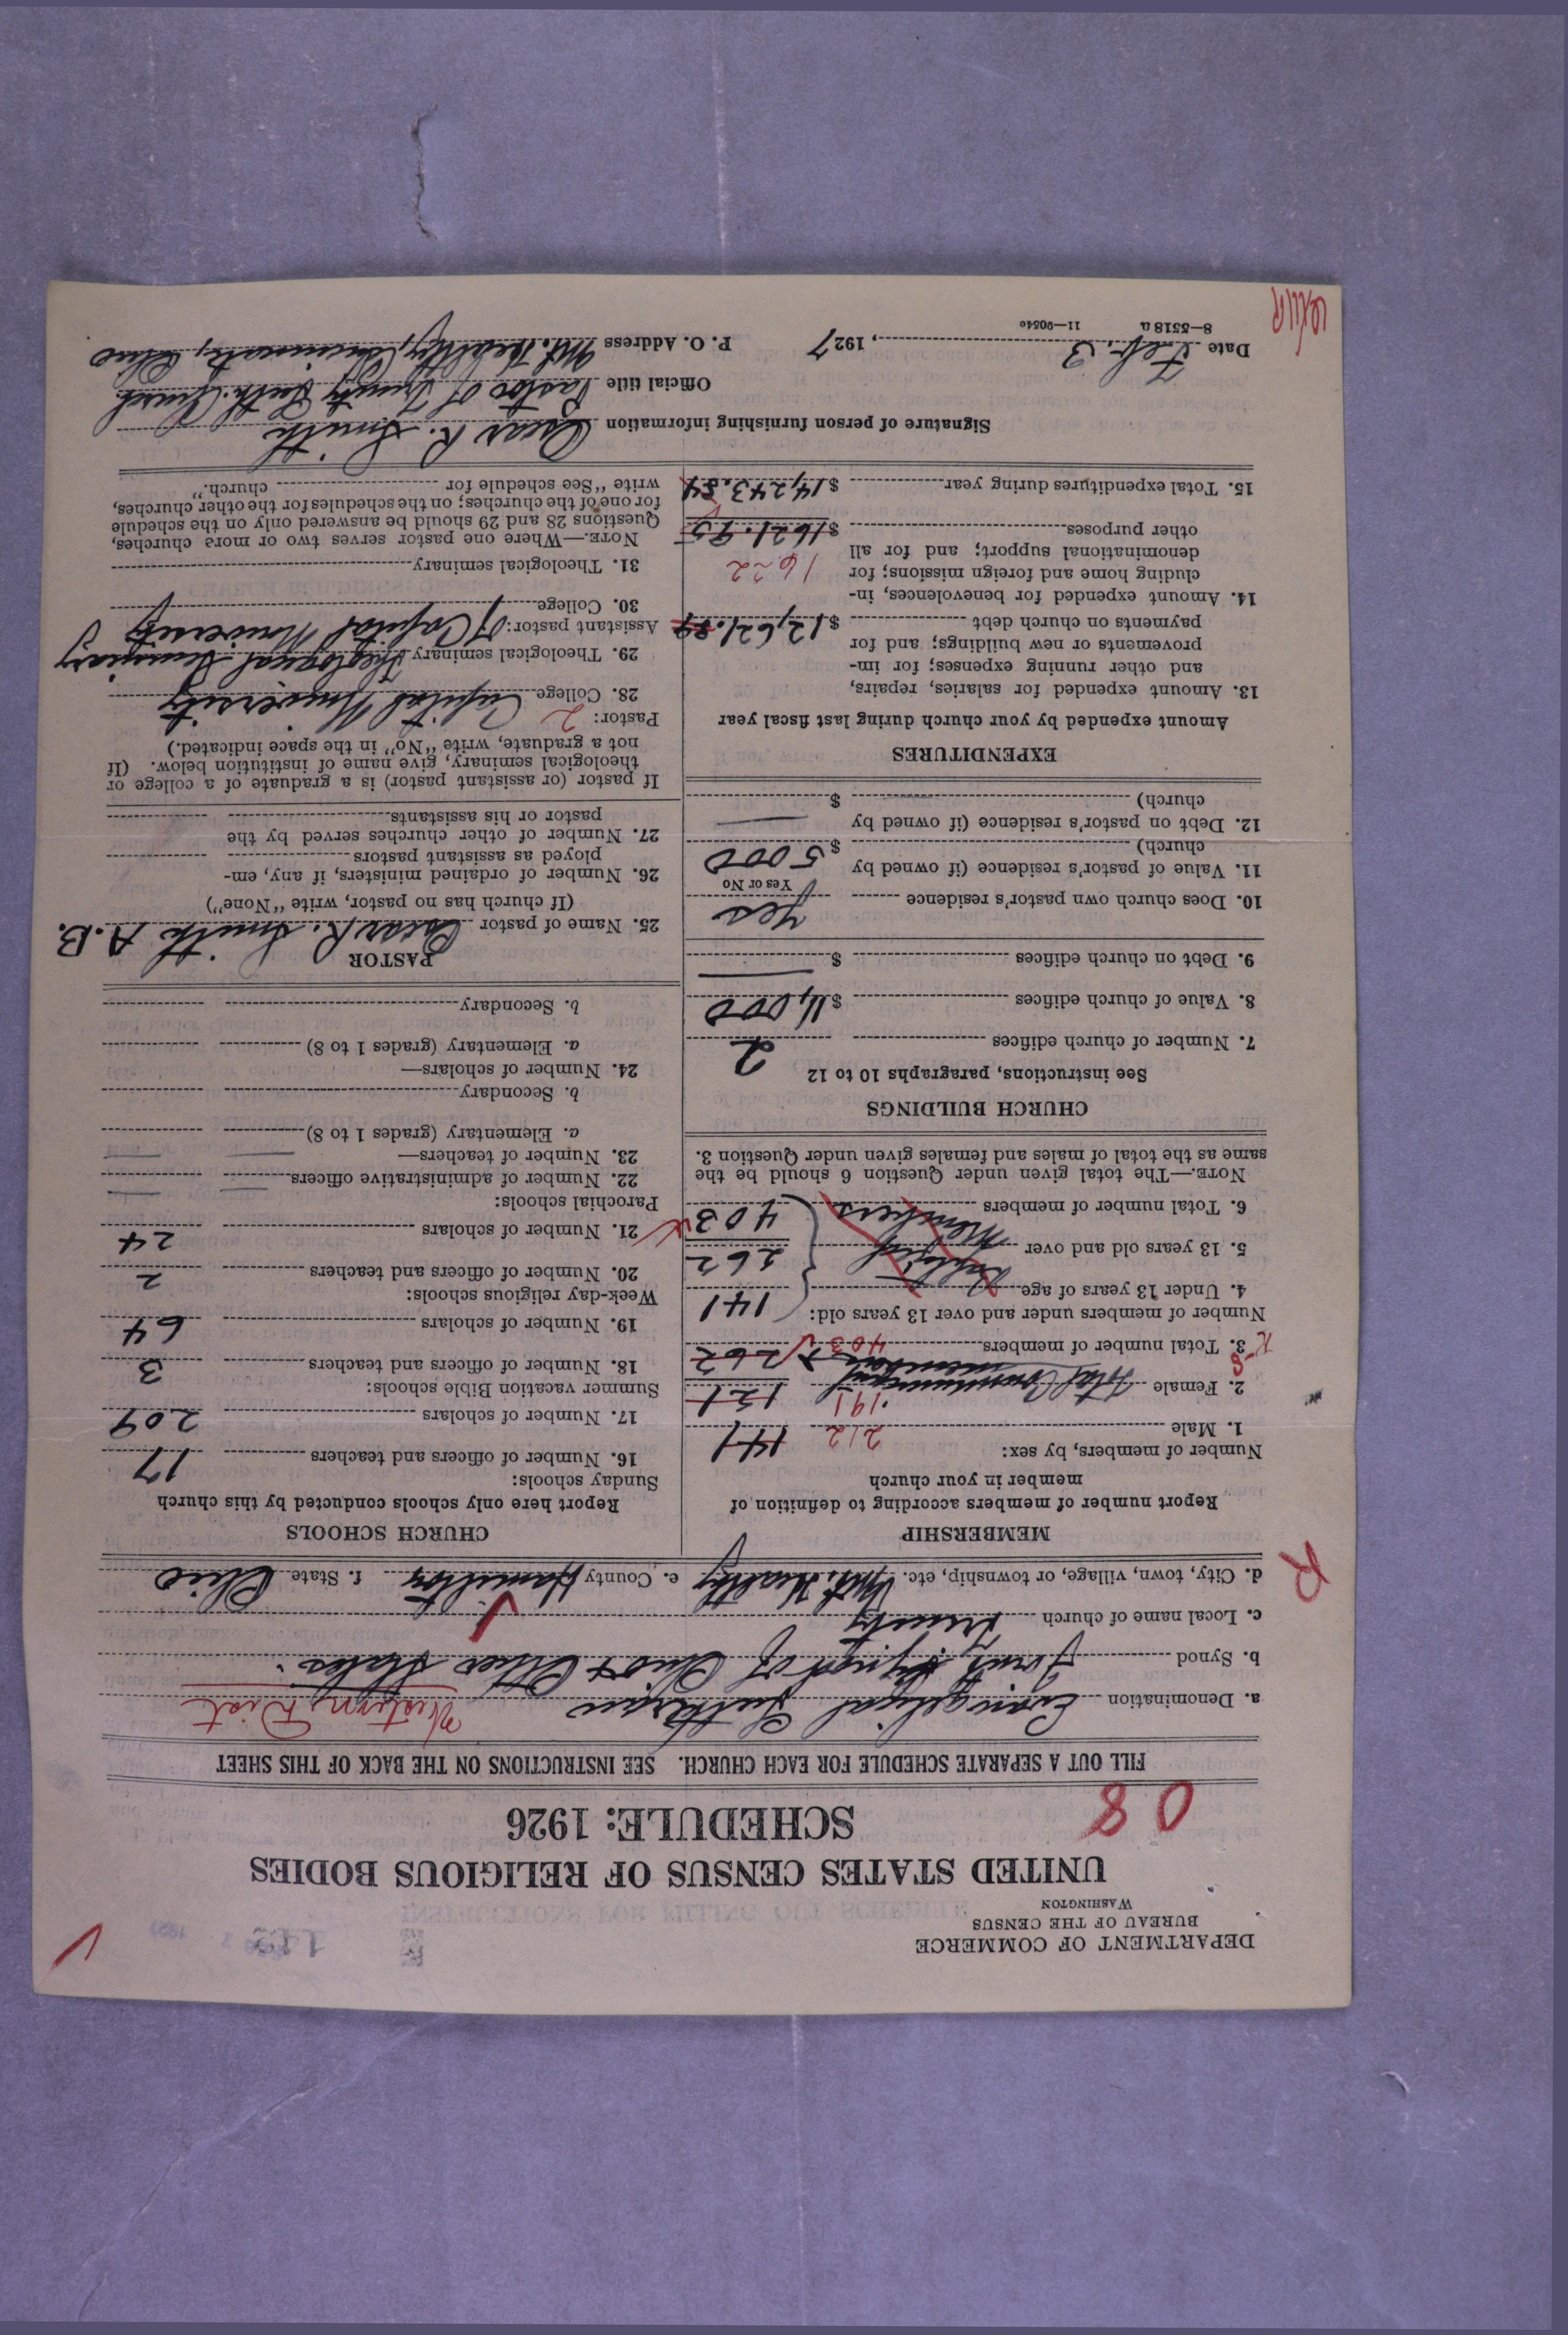 DEPARTMENT OF COMMERCE
BUREAU OF THE CENSUS
WASHINGTON
UNITED STATES CENSUS OF RELIGIOUS BODIES
SCHEDULE: 1926
08
FILL OUT A SEPARATE SCHEDULE FOR EACH CHURCH. SEE INSTRUCTIONS ON THE BACK OF THIS SHEET
a. Denomination Evangelical Lutheran Western Dist
b. Synod Joint Synod of Ohio & Other States.
c. Local name of church Trinity
d. City, town, village, or township, etc. Mt. Healthy e. County Hamilton f. State Ohio
R
MEMBERSHIP
Report number of members according to definition of
member in your church
Number of members, by sex:
1. Male 212 141
2. Female Total Communicant members 191 121
3. Total number of members 403 262
Number of members under and over 13 years old:
4. Under 13 years of age 141
5. 13 years old and over Baptized Members 262
6. Total number of members 403
NOTE.—The total given under Question 6 should be the
same as the total of males and females given under Question 3.
CHURCH BUILDINGS
See instructions, paragraphs 10 to 12
7. Number of church edifices 2
8. Value of church edifices $ ,000
9. Debt on church edifices $
10. Does church own pastor's residence Yes
Yes or No
11. Value of pastor's residence (if owned by
church) $ 5000
12. Debt on pastor's residence (if owned by
church) $
EXPENDITURES
Amount expended by your church during last fiscal year
13. Amount expended for salaries, repairs,
and other running expenses; for im-
provements or new buildings; and for
payments on church debt $12,621.89
14. Amount expended for benevolences, in-
cluding home and foreign missions; for
denominational support; and for all 1622
other purposes $1621.95
15. Total expenditures during year $14,243.84
CHURCH SCHOOLS
Report here only schools conducted by this church
Sunday schools:
16. Number of officers and teachers 17
17. Number of scholars 209
Summer vacation Bible schools:
18. Number of officers and teachers 3
19. Number of scholars 64
Week-day religious schools:
20. Number of officers and teachers 2
21. Number of scholars 24
Parochial schools:
22. Number of administrative officers
23. Number of teachers—
a. Elementary (grades 1 to 8)
b. Secondary
24. Number of scholars—
a. Elementary (grades 1 to 8)
b. Secondary
PASTOR
25. Name of pastor Oscar R. Smith A.B.
(If church has no pastor, write "None")
26. Number of ordained ministers, if any, em-
ployed as assistant pastors
27. Number of other churches served by the
pastor or his assistants
If pastor (or assistant pastor) is a graduate of a college or
theological seminary, give name of institution below. (If
not a graduate, write "No" in the space indicated.)
Pastor: 2
28. College Capital University
29. Theological seminary Theological Seminary
Assistant pastor: of Capital University
30. College
31. Theological seminary
NOTE.—Where one pastor serves two or more churches,
Questions 28 and 29 should be answered only on the schedule
for one of the churches; on the schedules for the other churches,
write "See schedule for church."
Signature of person furnishing information Oscar R. Smith
Official title Pastor of Trinity Luth. Church
Date Feb. 3, 1927 P. O. Address Mt. Healthy, Cincinnati, Ohio
8—5518 a 11—9054o